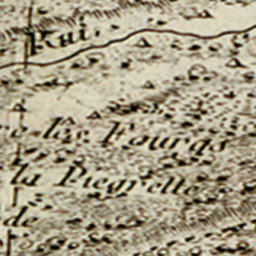 Rui
les Fourgs
la Piegrette
de